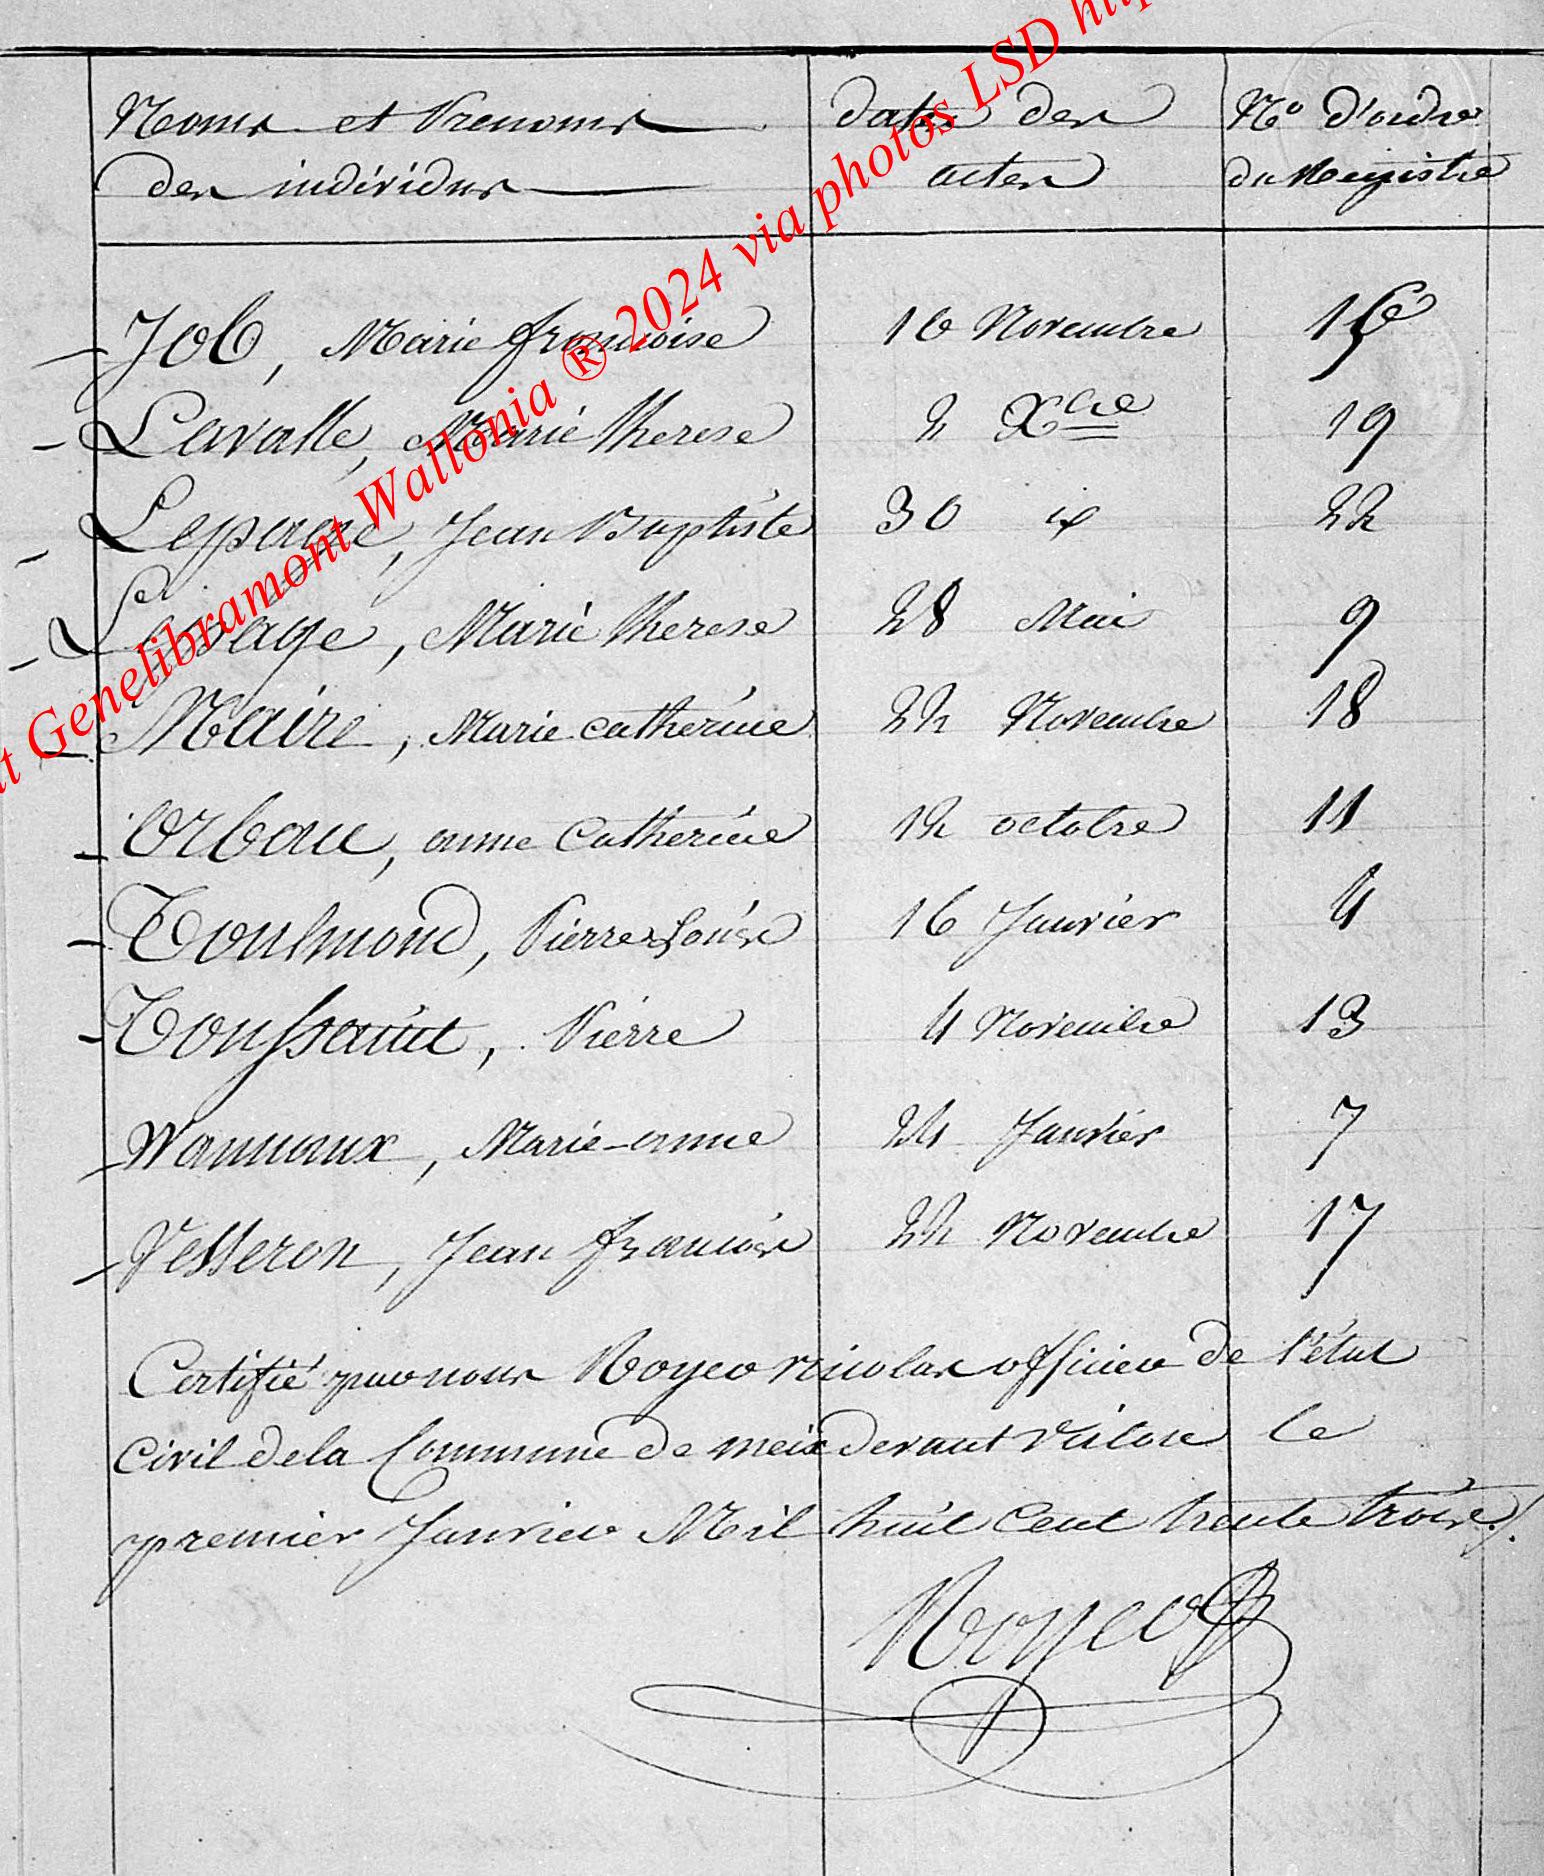 Noms et Prenoms dates des N.o d'ordre
des individus actes du Registre
Job, Marie françoise 16 Novembre 15
Lavalle, Marie therese 2 Xbre 19
Lepage, Jean Baptiste 30 id 22
Lepage, Marie therese 28 Mai 9
Maire, Marie catherine 22 Novembre 18
Orban, anne Catherine 12 octobre 11
Toulmond, Pierre Louis 16 Janvier 4
Toussaint, Pierre 4 Novembre 13
Wannaux, Marie-anne 24 Janvier 7
Vesseron, Jean François 22 Novembre 17
Certifié par nous Royer nicolas officier de l'état
Civil de la Commune de meix devant virton le
premier Janvier Mil huit Cent trente trois
Royer
Genelibramont Wallonia ® 2024 via photos LSD